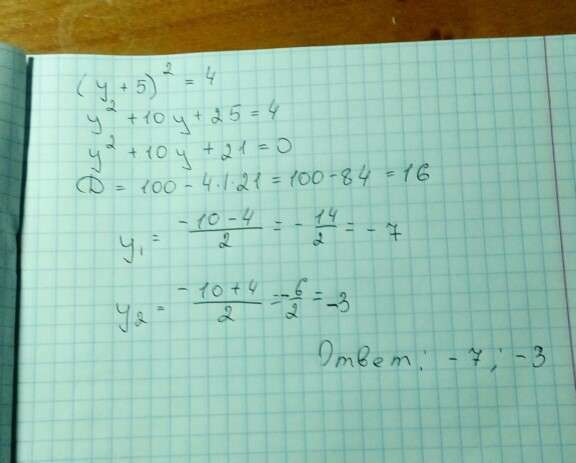 (y + 5)² = 4
y² + 10y + 25 = 4
y² + 10y + 21 = 0
D = 100 - 4·1·21 = 100 - 84 = 16
y₁ = (-10 - 4)/2 = -14/2 = -7
y₂ = (-10 + 4)/2 = -6/2 = -3
Ответ: -7; -3